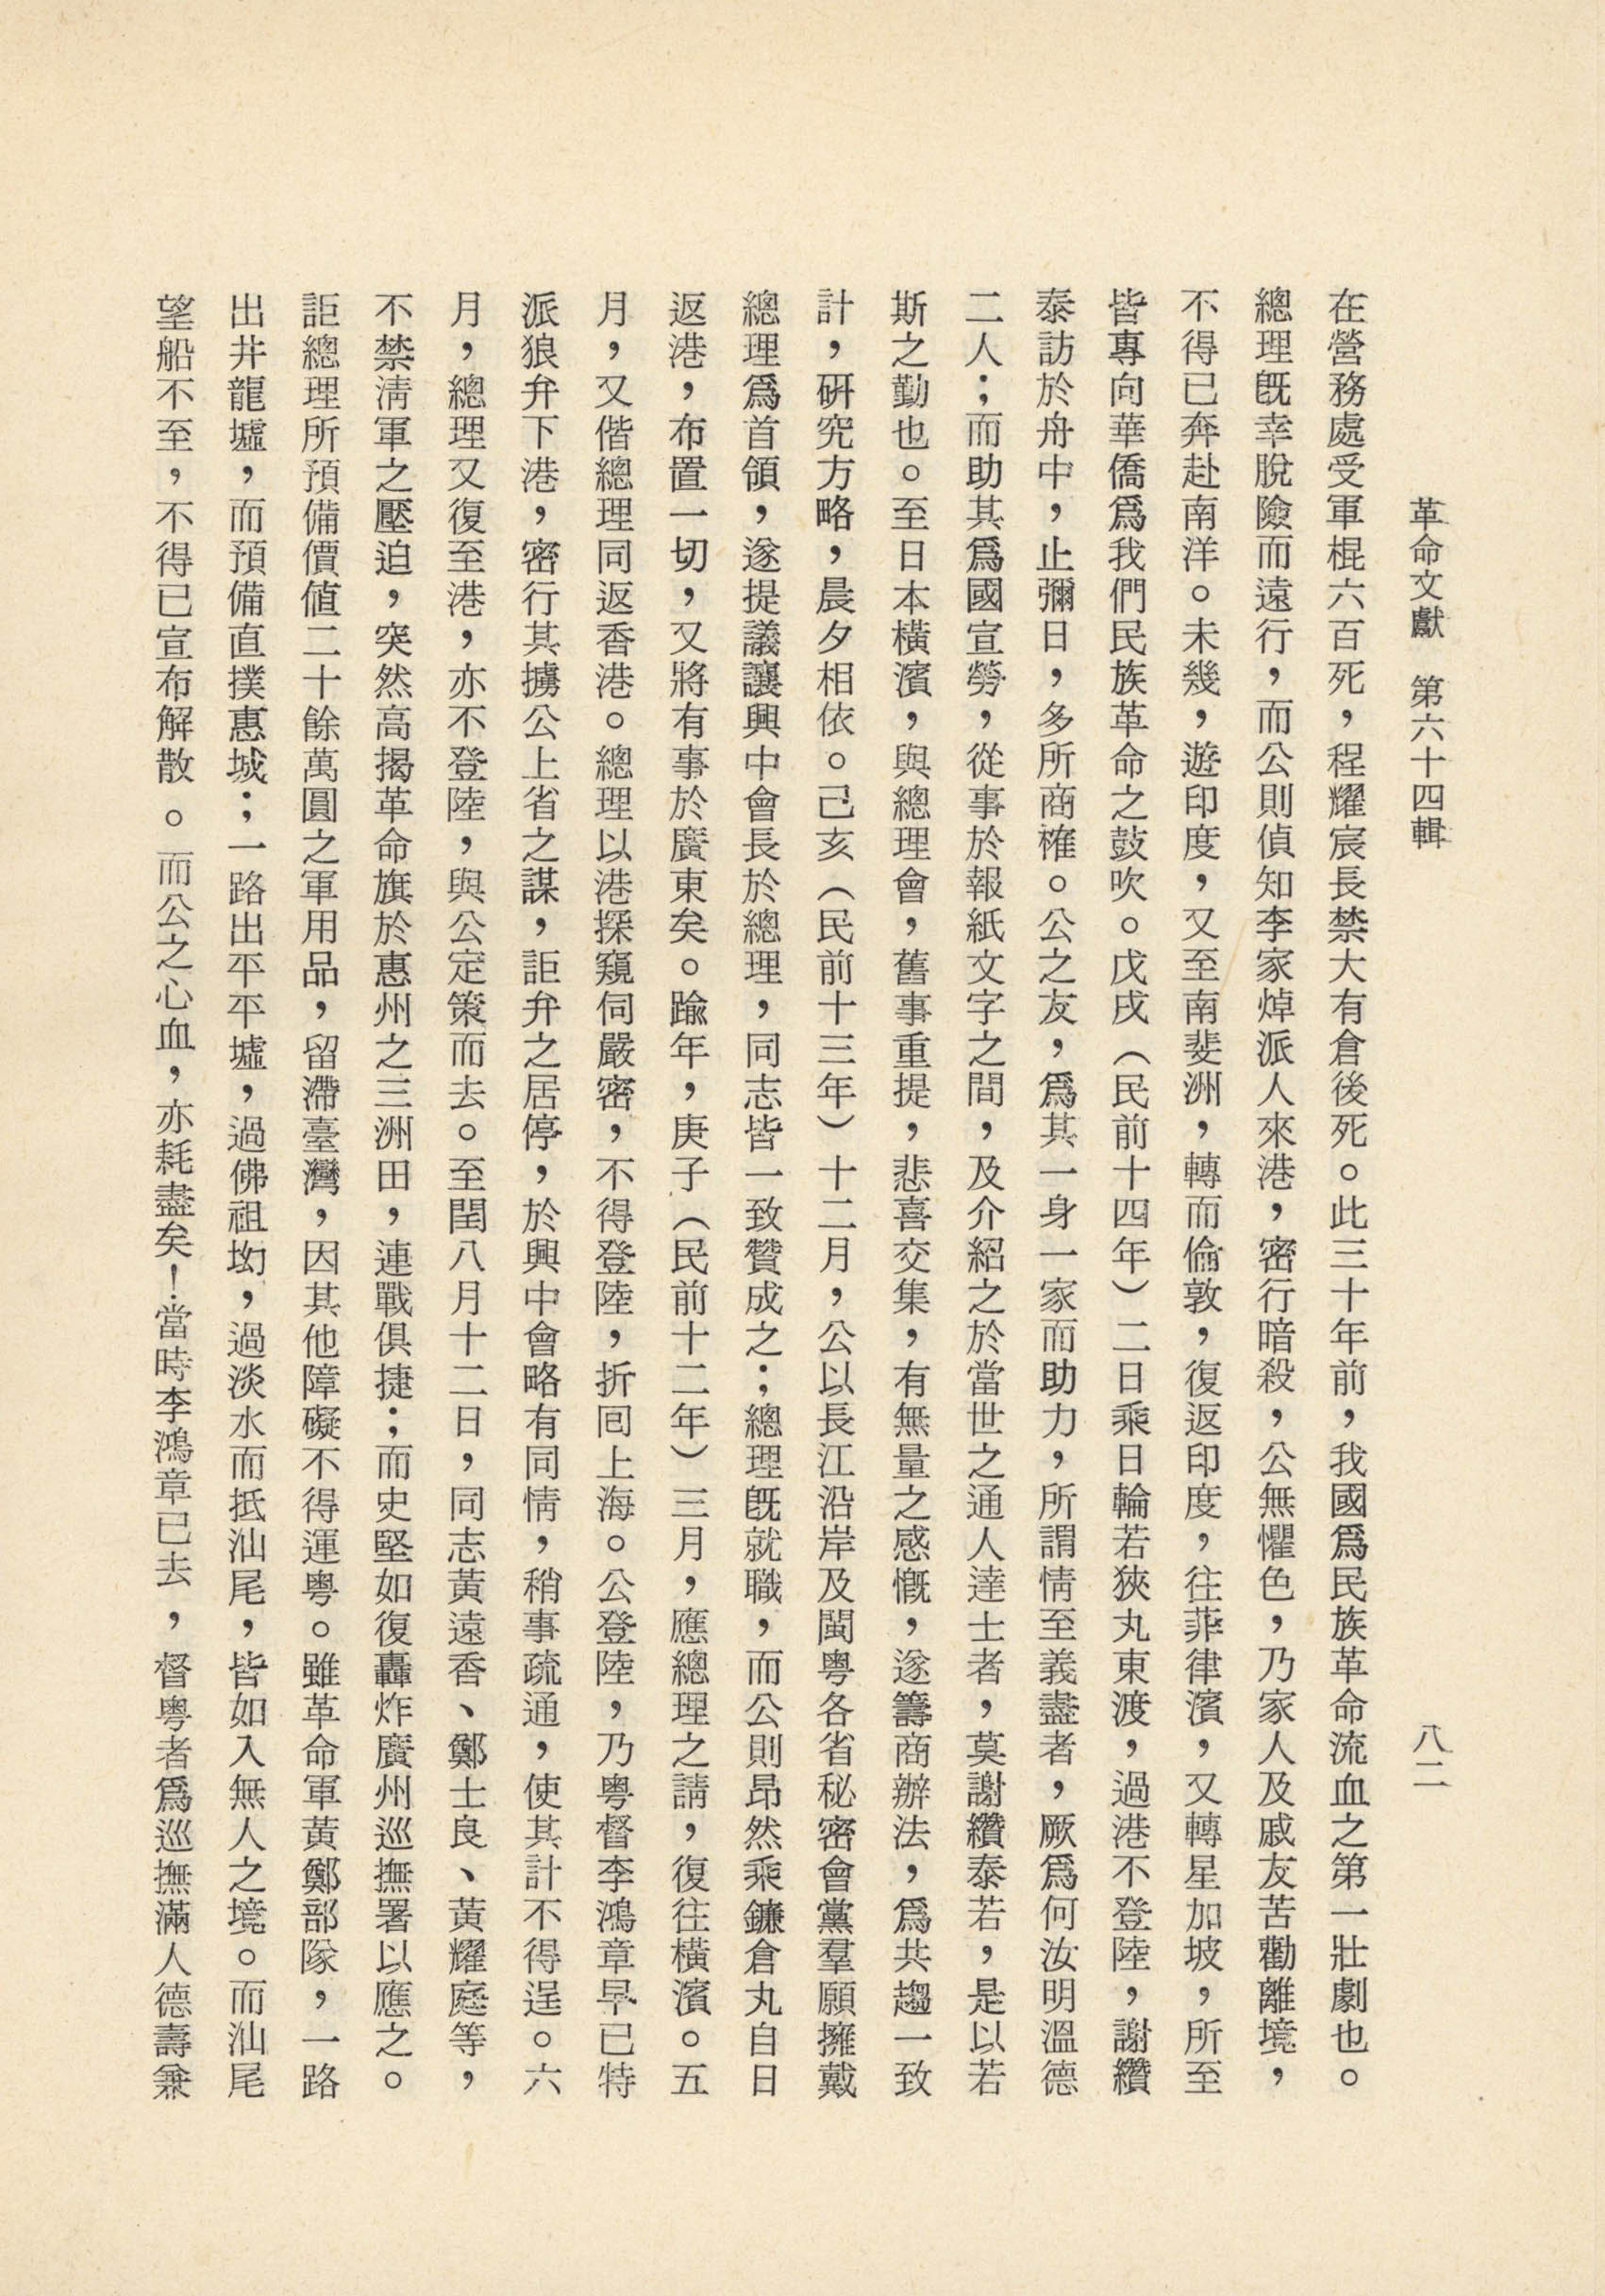 革命文獻　第六十四輯　八二
在營務處受軍棍六百死，程耀宸長禁大有倉後死。此三十年前，我國爲民族革命流血之第一壯劇也。
總理旣幸脫險而遠行，而公則偵知李家焯派人來港，密行暗殺，公無懼色，乃家人及戚友苦勸離境，
不得已奔赴南洋。未幾，遊印度，又至南斐洲，轉而倫敦，復返印度，往菲律濱，又轉星加坡，所至
皆專向華僑爲我們民族革命之鼓吹。戊戌（民前十四年）二日乘日輪若狹丸東渡，過港不登陸，謝纘
泰訪於舟中，止彌日，多所商榷。公之友，爲其一身一家而助力，所謂情至義盡者，厥爲何汝明溫德
二人；而助其爲國宣勞，從事於報紙文字之間，及介紹之於當世之通人達士者，莫謝纘泰若，是以若
斯之勤也。至日本橫濱，與總理會，舊事重提，悲喜交集，有無量之感慨，遂籌商辦法，爲共趨一致
計，研究方略，晨夕相依。己亥（民前十三年）十二月，公以長江沿岸及閩粵各省秘密會黨羣願擁戴
總理爲首領，遂提議讓興中會長於總理，同志皆一致贊成之；總理旣就職，而公則昂然乘鐮倉丸自日
返港，布置一切，又將有事於廣東矣。踰年，庚子（民前十二年）三月，應總理之請，復往橫濱。五
月，又偕總理同返香港。總理以港探窺伺嚴密，不得登陸，折囘上海。公登陸，乃粵督李鴻章早已特
派狼弁下港，密行其擄公上省之謀，詎弁之居停，於興中會略有同情，稍事疏通，使其計不得逞。六
月，總理又復至港，亦不登陸，與公定策而去。至閏八月十二日，同志黃遠香、鄭士良、黃耀庭等，
不禁淸軍之壓迫，突然高揭革命旗於惠州之三洲田，連戰俱捷；而史堅如復轟炸廣州巡撫署以應之。
詎總理所預備價値二十餘萬圓之軍用品，留滯臺灣，因其他障礙不得運粵。雖革命軍黃鄭部隊，一路
出井龍墟，而預備直撲惠城；一路出平平墟，過佛祖坳，過淡水而抵汕尾，皆如入無人之境。而汕尾
望船不至，不得已宣布解散。而公之心血，亦耗盡矣！當時李鴻章已去，督粵者爲巡撫滿人德壽兼